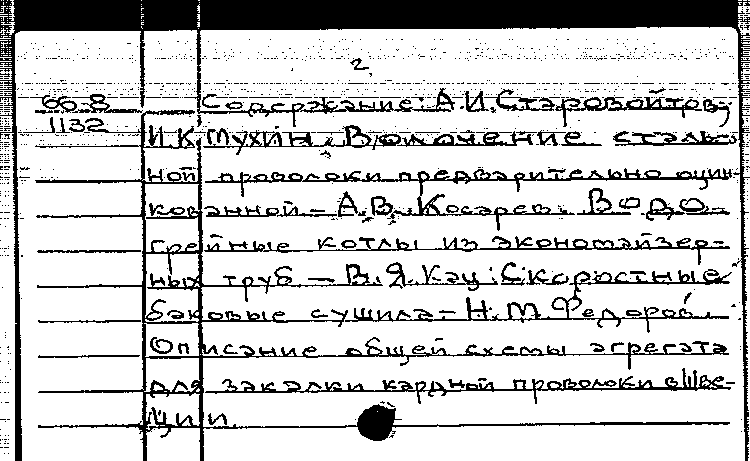 2.
66-8 Содержание: А.И.Старовойтов,
1132 И.К.Мухин. Волочение сталь-
ной проволоки предварительно оцин-
кованной – А.В. Косарев. Водо-
грейные котлы из экономайзер-
ных труб – В.Я.Кац: Скоростные
баковые сушила – Н.М.Федоров.
Описание общей схемы агрегата
для закалки кардной проволоки в Шве-
ции.